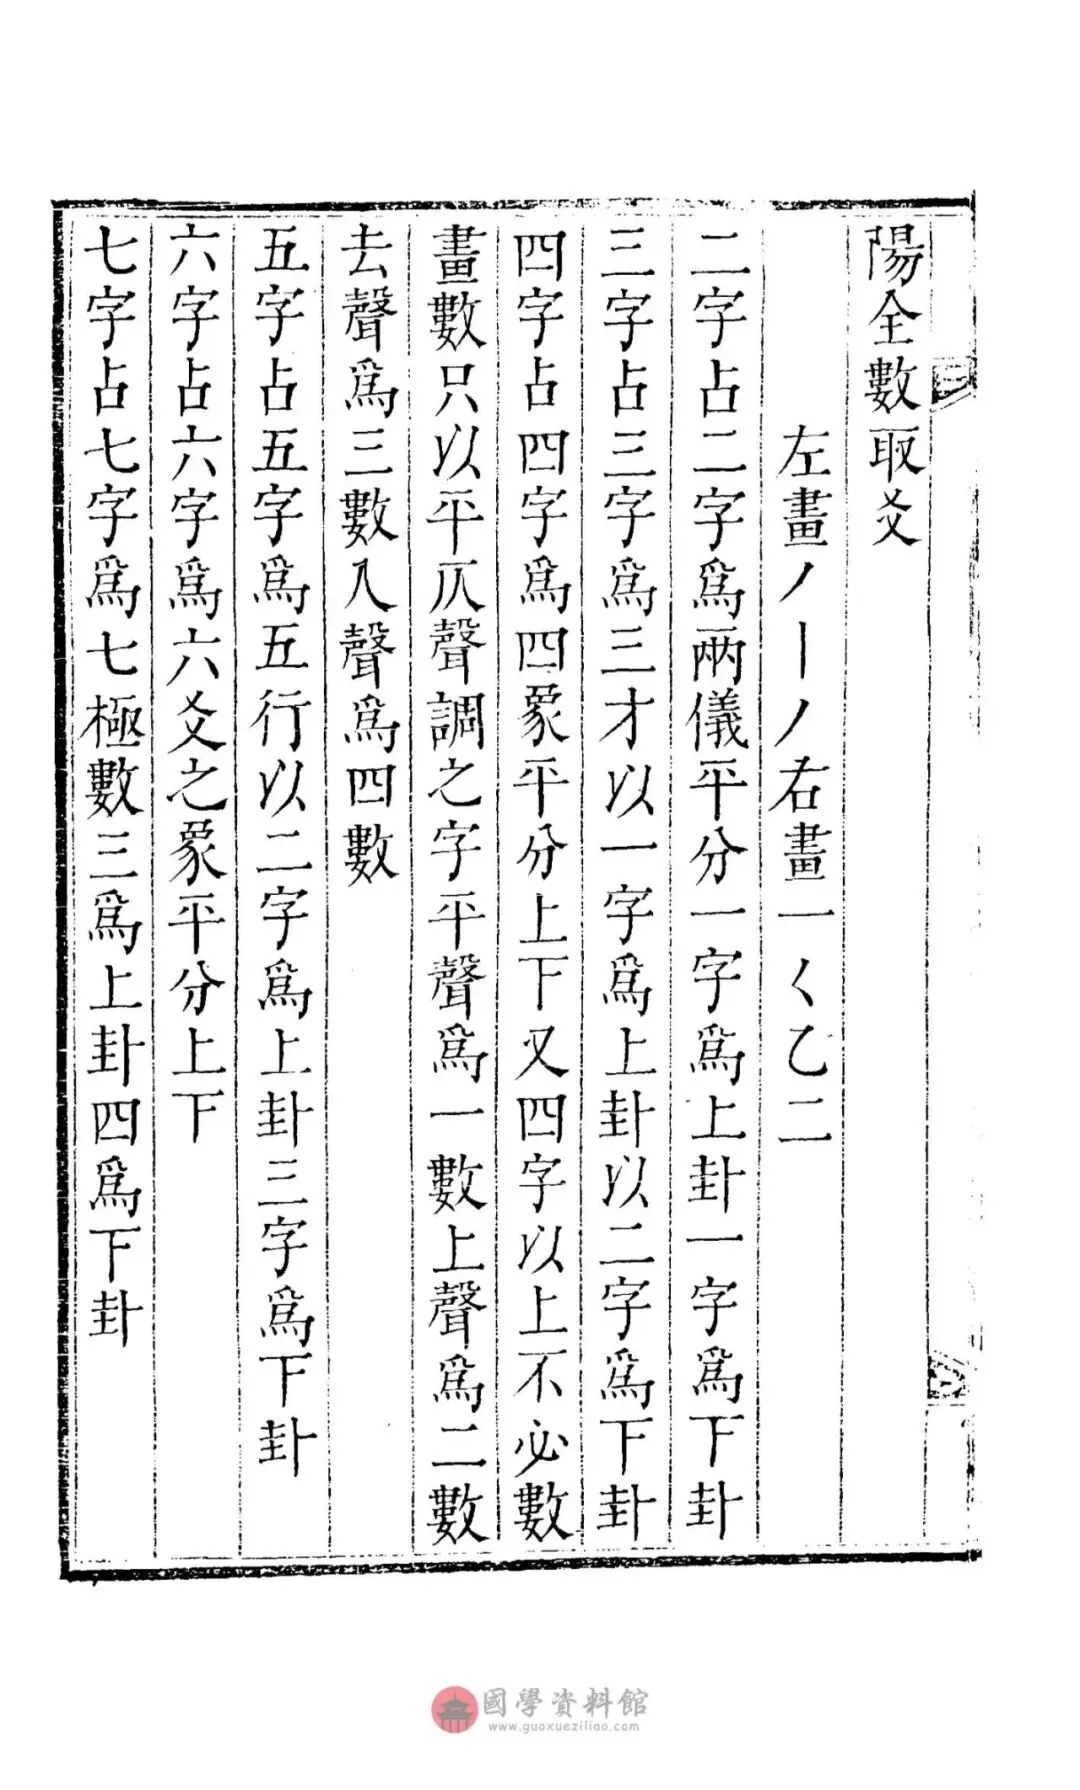 陽全數取爻
左畫丿丨丿右畫一く乙二
二字占二字爲兩儀平分一字爲上卦一字爲下卦
三字占三字爲三才以一字爲上卦以二字爲下卦
四字占四字爲四象平分上下又四字以上不必數
畫數只以平仄聲調之字平聲爲一數上聲爲二數
去聲爲三數入聲爲四數
五字占五字爲五行以二字爲上卦三字爲下卦
六字占六字爲六爻之象平分上下
七字占七字爲七極數三爲上卦四爲下卦
國學資料館
www.guoxueziliao.com